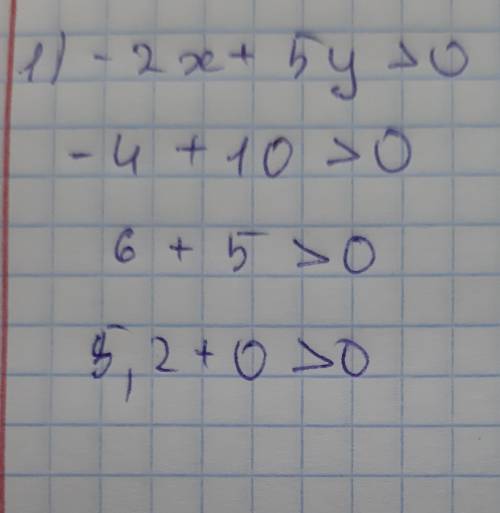 1) -2x + 5y > 0
-4 + 10 > 0
6 + 5 > 0
5,2 + 0 > 0